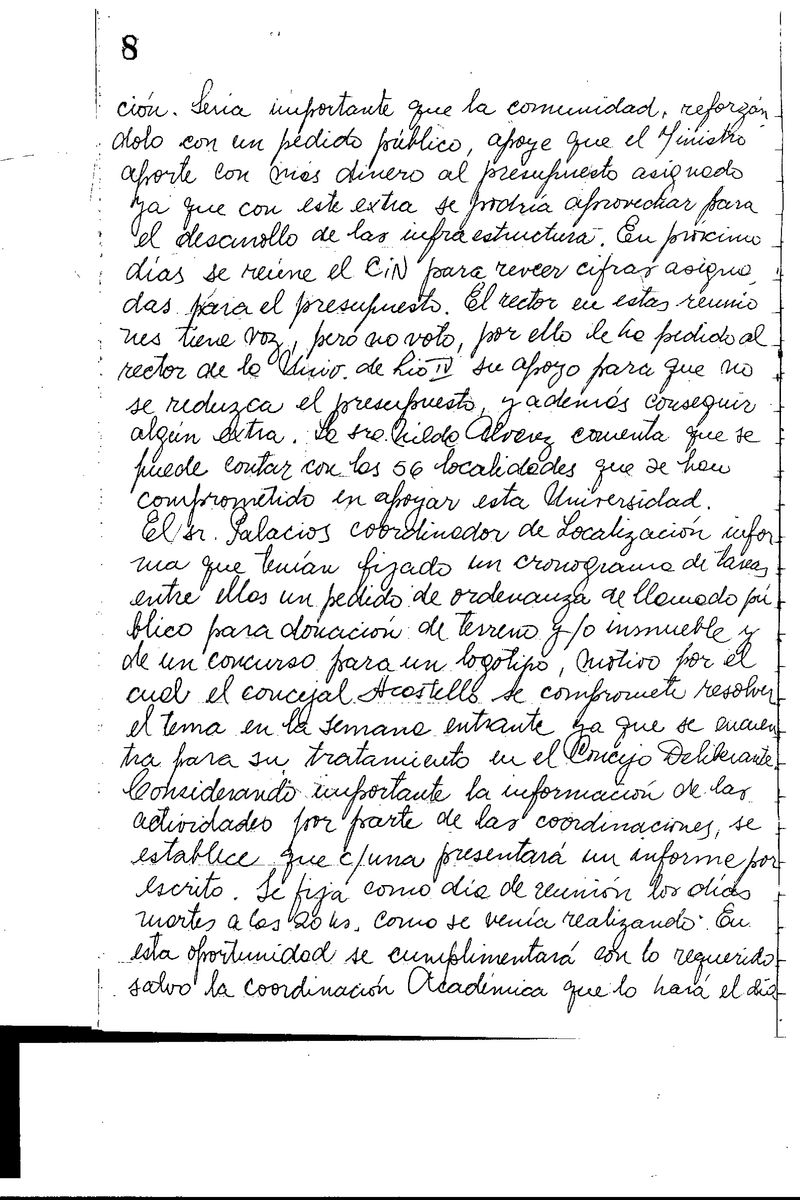 8
ción. Sería importante que la comunidad, reforzán
dolo con un pedido público, apoye que el Ministro
aporte con más dinero al presupuesto asignado
ya que con este extra se podría aprovechar para
el desarrollo de las infraestructura. En próximo
días se reúne el CIN para reveer cifras asigna
das para el presupuesto. El rector en estas reunio
nes tiene voz, pero no voto, por ello le ha pedido al
rector de la Univ. de Río IV su apoyo para que no
se reduzca el presupuesto, y además conseguir
algún extra. La sra. Alvarez comenta que se
puede contar con las 56 localidades que se han
comprometido en apoyar esta Universidad.
El sr. Palacios coordinador de Localización infor
ma que tenían fijado un cronograma de tareas
entre ellas un pedido de ordenanza de llamado pú
blico para donación de terreno y/o inmueble y
de un concurso para un logotipo, motivo por el
cual el concejal Acastello se compromete resolver
el tema en la semana entrante ya que se encuen
tra para su tratamiento en el Concejo Deliberante.
Considerando importante la información de las
actividades por parte de las coordinaciones, se
establece que c/una presentará un informe por
escrito. Se fija como día de reunión los días
martes a las 20 hs, como se venía realizando. En
esta oportunidad se cumplimentará con lo requerido
salvo la coordinación Académica que lo hará el día